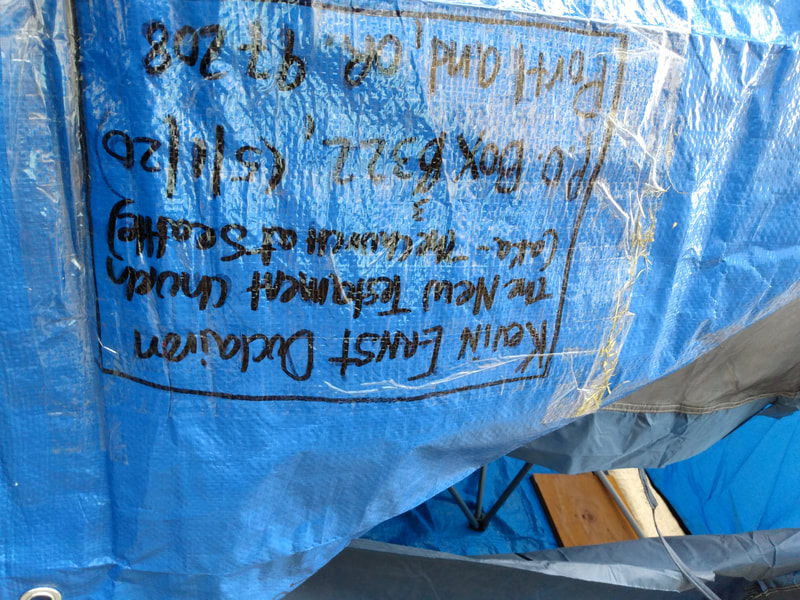 Kevin Ernst Duclairon
The New Testament Church
(aka- The Church at Seattle)
P.O. Box (5/11/20
Portland, OR. 97208